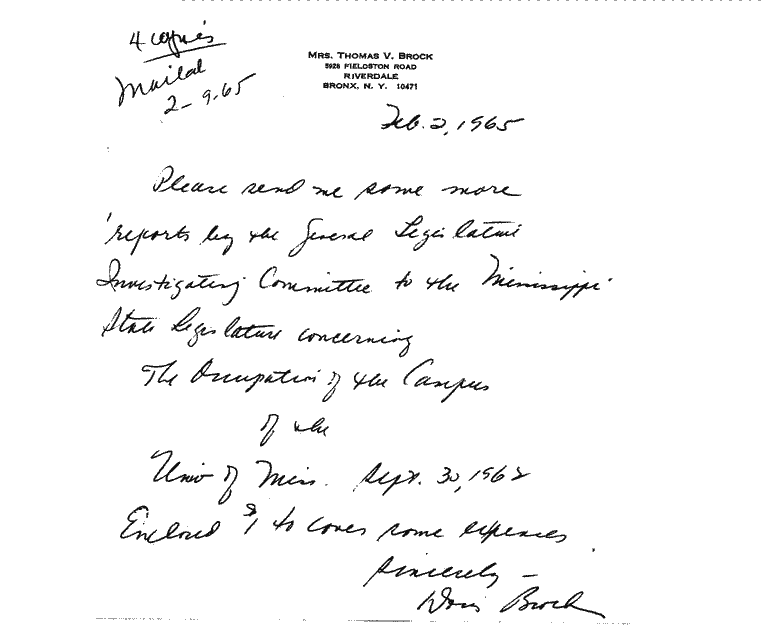 4 copies
Mailed
2-9-65
MRS. THOMAS V. BROCK
5928 FIELDSTON ROAD
RIVERDALE
BRONX, N. Y. 10471
Feb. 2, 1965
Please send me some more
reports by the General Legislative
Investigating Committee to the Mississippi
State Legislature concerning
The Occupation of the Campus
of the
Univ of Miss. Sept. 30, 1962
Enclosed $1 to cover some expenses.
Sincerely -
Doris Brock